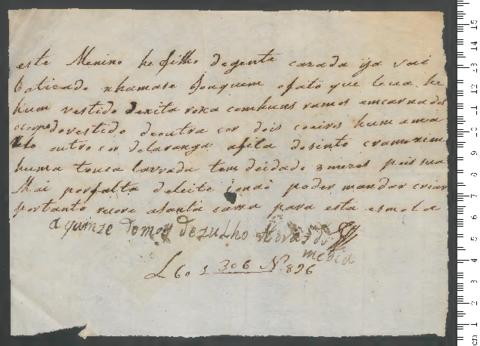 este Menino he filho degente cazada ija vai
batizado xhamase Joaquem ofato que leua he
hum vestido dexita roxa comhuns ramos emcarnados
ocorpo dovestido deoutra cor dois coeiros hum ama
relo outro cor delaranga afita dosinto cramezim
huma touca lavrada tem deidade 3 mezes pois sua
Mai porfalta deleite inaõ poder mandar criar
portanto recore asanta caza para esta esmola
a quinze domes dejulho
L 60 f 306 N. 896